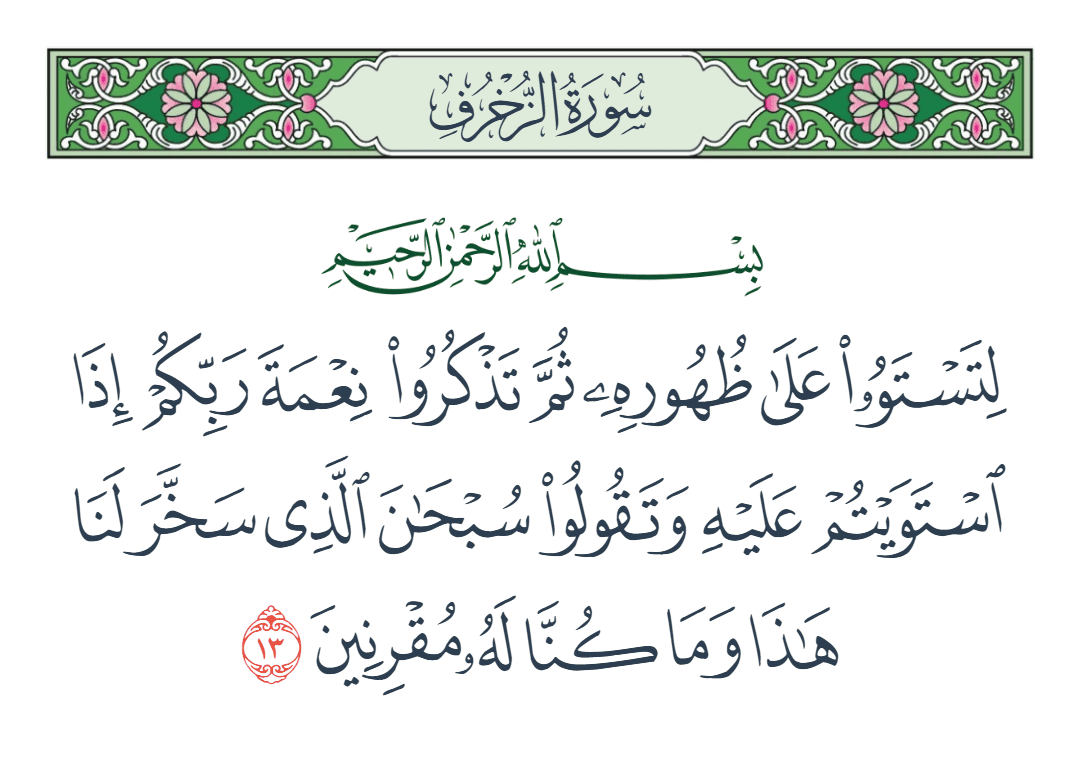 سُورَةُ الزُّخْرُفِ
بِسْمِ ٱللَّهِ ٱلرَّحْمَٰنِ ٱلرَّحِيمِ
لِتَسْتَوُۥا۟ عَلَىٰ ظُهُورِهِۦ ثُمَّ تَذْكُرُوا۟ نِعْمَةَ رَبِّكُمْ إِذَا
ٱسْتَوَيْتُمْ عَلَيْهِ وَتَقُولُوا۟ سُبْحَٰنَ ٱلَّذِى سَخَّرَ لَنَا
هَٰذَا وَمَا كُنَّا لَهُۥ مُقْرِنِينَ ١٣